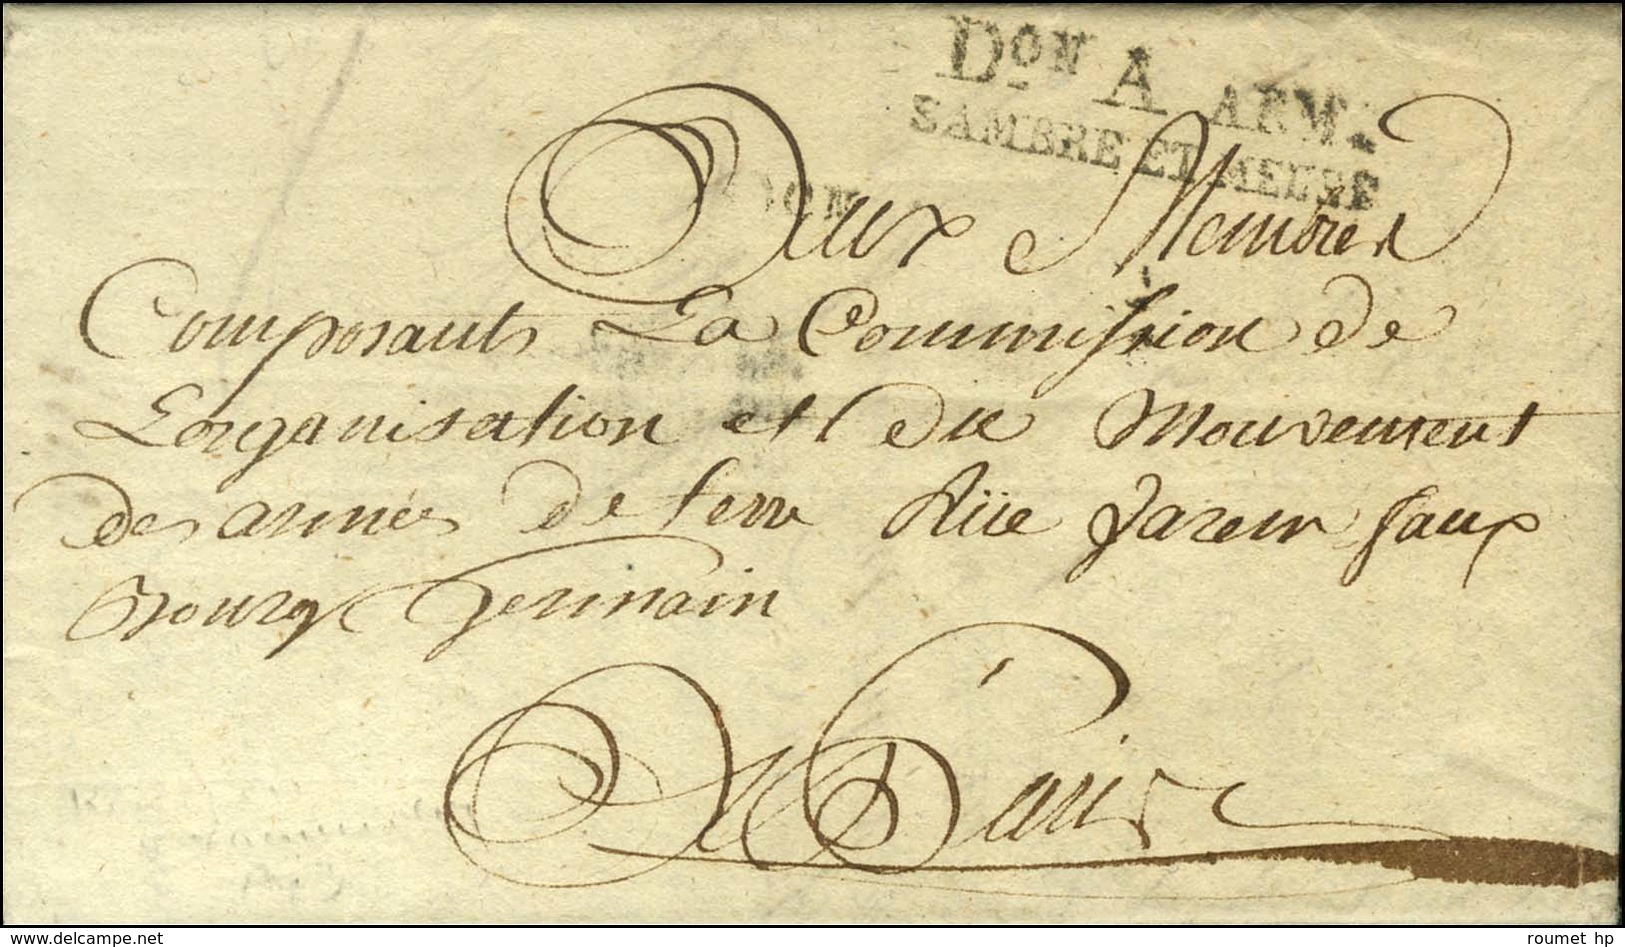 Dᵒᴺ A ARM.
SAMBRE ET MEUSE
Aux Membres
Composants La Commission de
L'organisation et du Mouvement
des armées de terre Rüe Varenn faux
Bourg Germain
A Paris
roumet hp